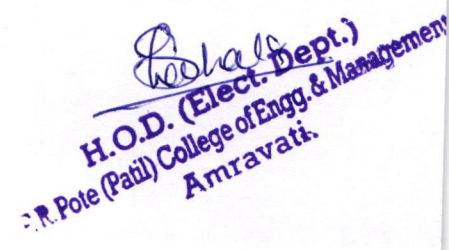 H.O.D. (Elect. Dept.)
R. Pote (Patil) College of Engg. & Management
Amravati.